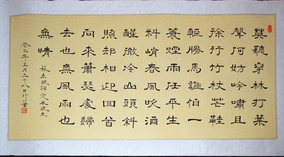 莫聽穿林打葉
聲何妨吟嘯且
徐行竹杖芒鞋
輕勝馬誰怕一
蓑煙雨任平生
料峭春風吹酒
醒微冷山頭斜
照却相迎回首
向來蕭瑟處歸
去也無風雨也
無晴
蘇東坡詞定風波